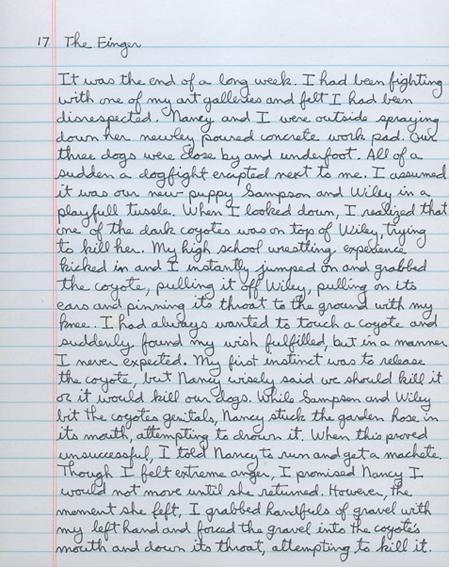 17 The Finger
It was the end of a long week. I had been fighting
with one of my art galleries and felt I had been
disrespected. Nancy and I were outside spraying
down her newley poured concrete work pad. Our
three dogs were close by and underfoot. All of a
sudden a dogfight erupted next to me. I assumed
it was our new puppy Sampson and Wiley in a
playfull tussle. When I looked down, I realized that
one of the dark coyotes was on top of Wiley, trying
to kill her. My high school wrestling experience
kicked in and I instantly jumped on and grabbed
the coyote, pulling it off Wiley, pulling on its
ears and pinning its throat to the ground with my
knee. I had always wanted to touch a coyote and
suddenly found my wish fulfilled, but in a manner
I never expected. My first instinct was to release
the coyote, but Nancy wisely said we should kill it
or it would kill our dogs. While Sampson and Wiley
bit the coyotes genitals, Nancy stuck the garden hose in
its mouth, attempting to drown it. When this proved
unsuccessful, I told Nancy to run and get a machete.
Though I felt extreme anger, I promised Nancy I
would not move until she returned. However, the
moment she left, I grabbed handfuls of gravel with
my left hand and forced the gravel into the coyote's
mouth and down its throat, attempting to kill it.